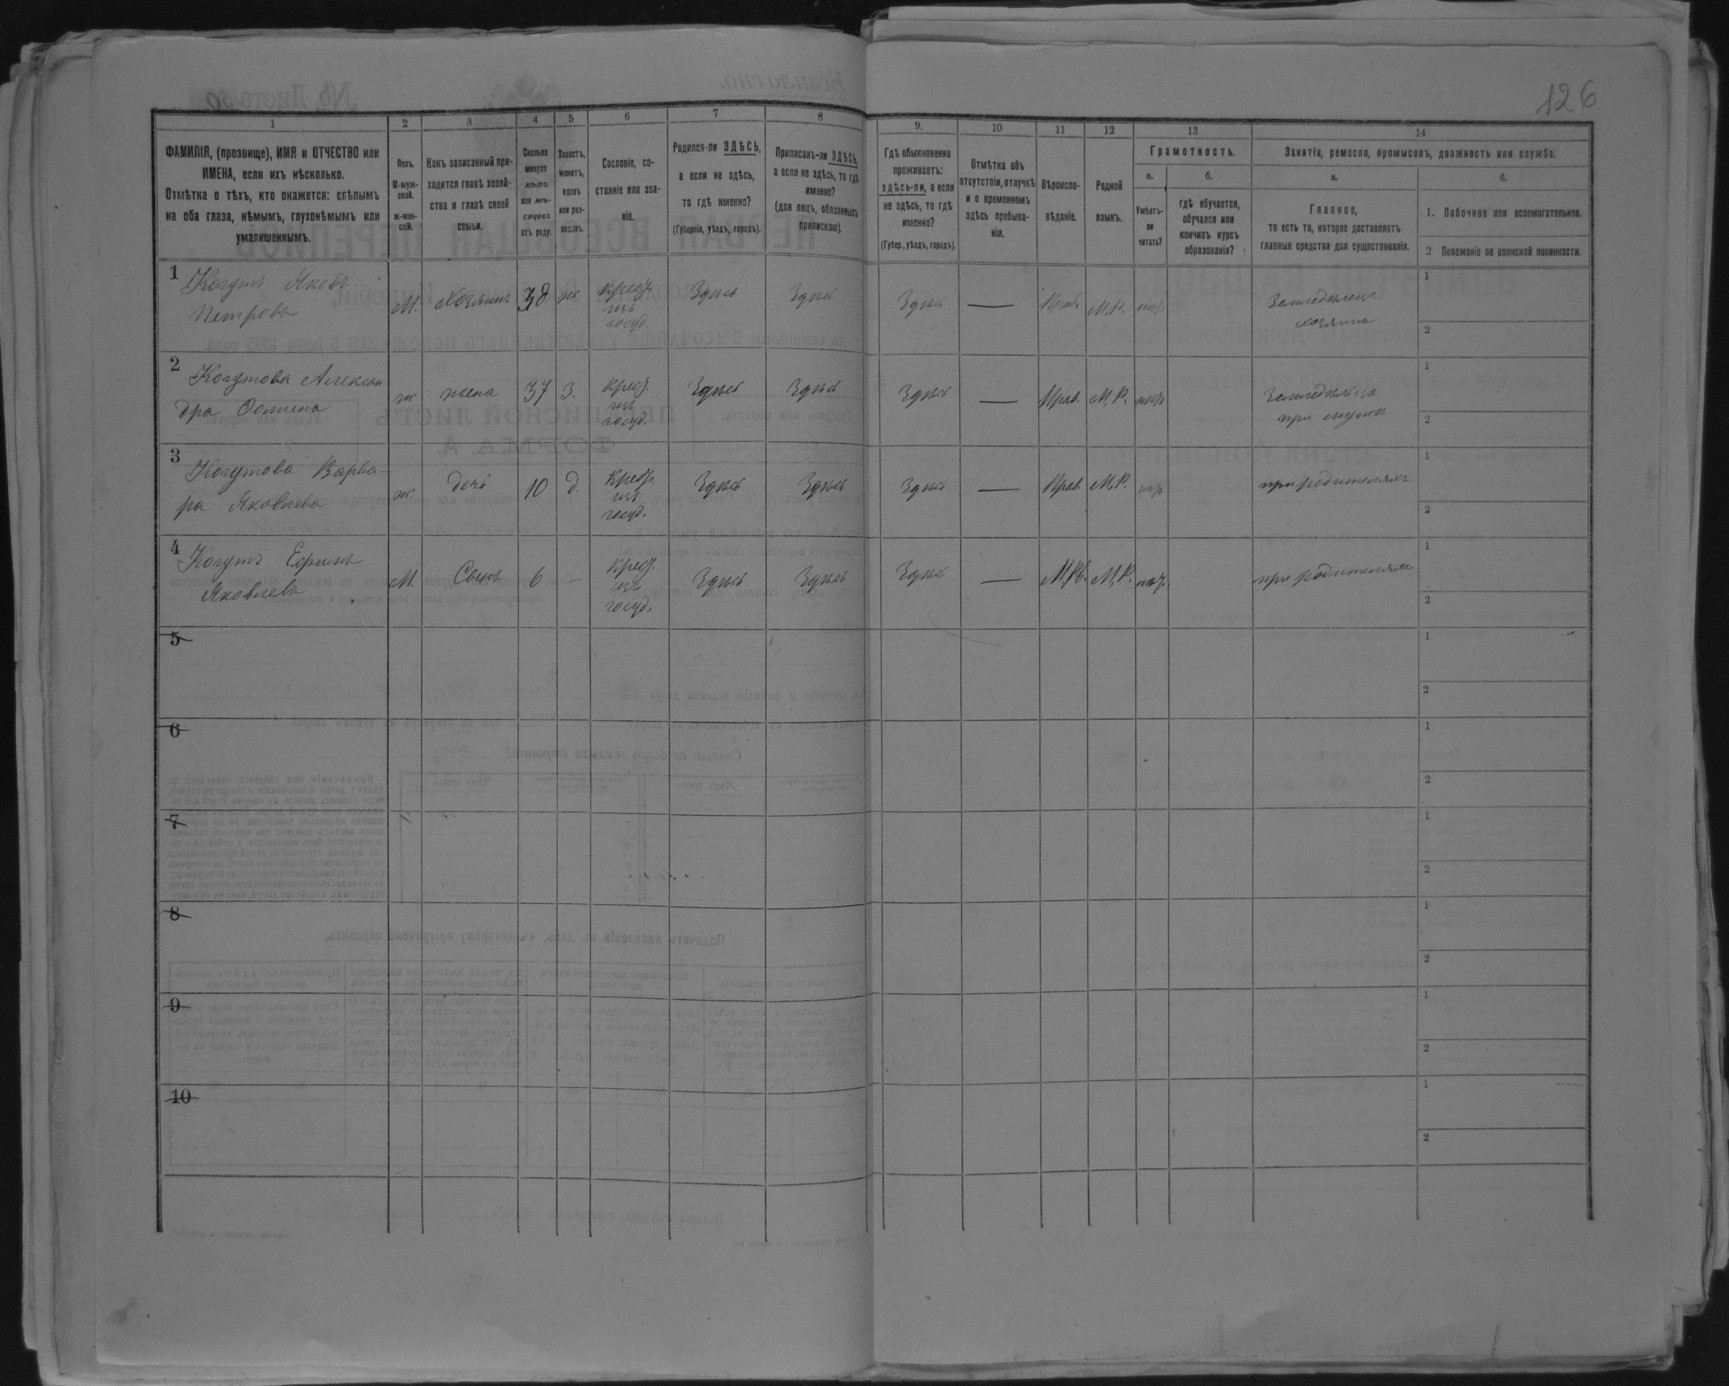 126
1
2
3
4
5
6
7
8
9.
10
11
12
13
14
ФАМИЛІЯ, (прозвище), ИМЯ и ОТЧЕСТВО или
ИМЕНА, если ихъ нѣсколько.
Отмѣтка о тѣхъ, кто окажется: слѣпымъ
на оба глаза, нѣмымъ, глухонѣмымъ или
умалишеннымъ.
Полъ.
М-муж-
ской.
ж-жен-
скій.
Какъ записанный при-
ходится главѣ хозяй-
ства и главѣ своей
семьи.
Сколько
минуло
лѣтъ
или мѣ-
сяцевъ
отъ роду.
Холостъ,
женатъ,
вдовъ
или раз-
веденъ.
Сословіе, со-
стояніе или зва-
ніе.
Родился-ли ЗДѢСЬ,
а если не здѣсь,
то гдѣ именно?
(Губернія, уѣздъ, городъ).
Приписанъ-ли ЗДѢСЬ,
а если не здѣсь, то гдѣ
именно?
(для лицъ, обязанныхъ
припискою).
Гдѣ обыкновенно
проживаетъ:
здѣсь-ли, а если
не здѣсь, то гдѣ
именно?
(Губер., уѣздъ, городъ).
Отмѣтка объ
отсутствіи, отлучкѣ
и о временномъ
здѣсь пребыва-
ніи.
Вѣроиспо-
вѣданіе.
Родной
языкъ.
Грамотность.
а.
б.
Умѣетъ-
ли
читать?
гдѣ обучается,
обучался или
кончилъ курсъ
образованія?
Занятіе, ремесло, промыселъ, должность или служба.
а.
б.
Главное,
то есть то, которое доставляетъ
главныя средства для существованія.
1. Побочное или вспомогательное.
2 Положеніе по воинской повинности.
1
Когутъ Яковъ
Петровъ
М.
Хозяинъ
38
ж
крест.
изъ
госуд.
Здѣсь
Здѣсь
Здѣсь
—
Прав.
М.Р.
Земледѣлецъ
хозяинъ
1
2
2
Когутова Алексан
дра
ж
жена
37
З.
крест.
изъ
госуд.
Здѣсь
Здѣсь
Здѣсь
—
Прав.
М.Р.
при
1
2
3
Когутова Варва-
ра Яковлева
ж.
дочь
10
д.
крест.
изъ
госуд.
Здѣсь
Здѣсь
Здѣсь
—
Прав.
М.Р.
при родителяхъ
1
2
4
Когутъ
Яковлевъ
М.
Сынъ
6
–
крест.
изъ
госуд.
Здѣсь
Здѣсь
Здѣсь
—
М.Р.
при родителяхъ
1
2
5
1
2
6
1
2
7
1
2
8
1
2
9
1
2
10
1
2